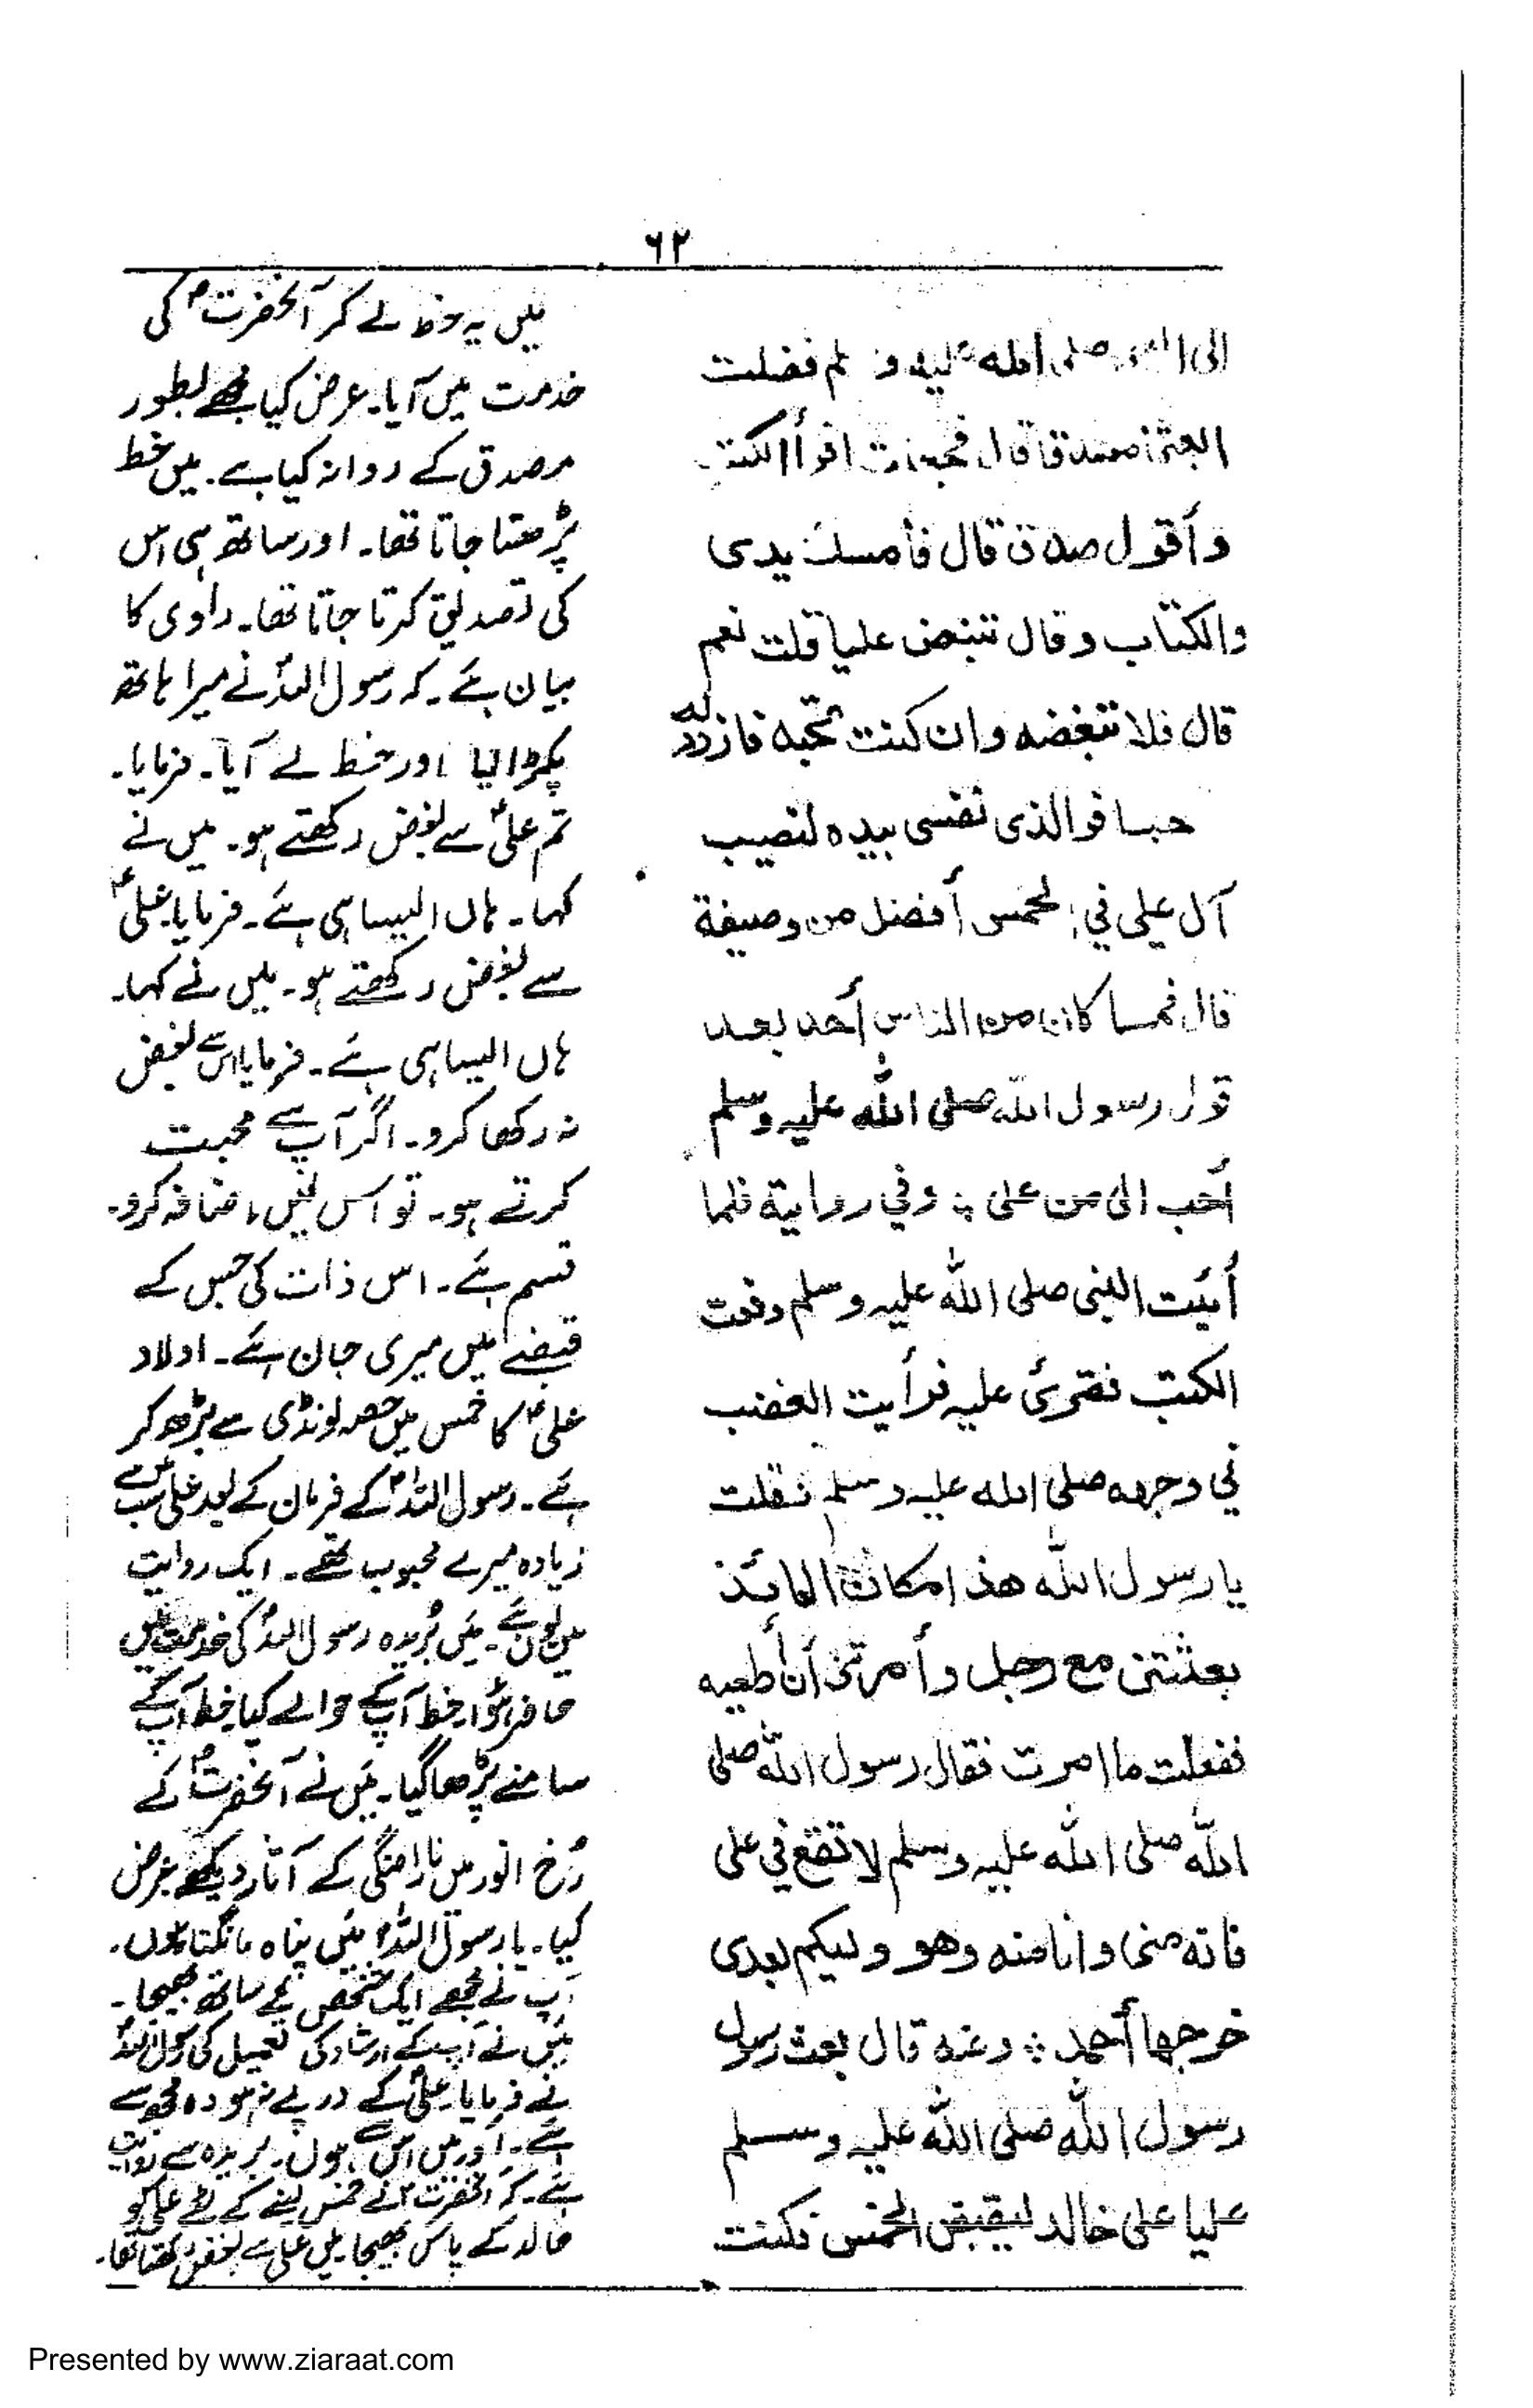 ٦٢
الى النبى صلى الله عليه و لم فضلت
ابعثنا مصدقا قال فجعلت اقرأ الكتب
وأقول صدق قال فأمسك يدى
والكتاب وقال تبغض عليا قلت نعم
قال فلا تبغضه وان كنت تحبه فازدد له
حبا فوالذى نفسى بيده لنصيب
آل علي في الخمس أفضل من وصيفة
قال فما كان من الناس أحد بعد
قول رسول الله صلى الله عليه وسلم
أحب الى من على ؞ وفي رواية فلما
أتيت النبى صلى الله عليه وسلم دفعت
الكتب فقرئ عليه فرأيت الغضب
في وجهه صلى الله عليه وسلم فقلت
يا رسول الله هذا مكان العائذ
بعثتنى مع رجل وأمرتنى أن أطعيه
ففعلت ما امرت فقال رسول الله صلى
الله صلى الله عليه وسلم لا تقع في على
فانه منى وانا منه وهو وليكم بعدى
خرجها أحمد ؞ وعنه قال بعث رسول
رسول الله صلى الله عليه وسلم
عليا على خالد ليقبض الخمس فكنت
میں یہ خط لے کر آنحضرتؐ کی
خدمت میں آیا۔ عرض کیا مجھے بطور
مصدق کے روانہ کیا ہے۔ میں خط
پڑھتا جاتا تھا۔ اور ساتھ ہی اس
کی تصدیق کرتا جاتا تھا۔ راوی کا
بیان ہے۔ کہ رسول اللہؐ نے میرا ہاتھ
پکڑا لیا اور خط لے آیا۔ فرمایا۔
تم علیؑ سے بغض رکھتے ہو۔ میں نے
کہا۔ ہاں ایسا ہی ہے۔ فرمایا علیؑ
سے بغض رکھتے ہو۔ میں نے کہا۔
ہاں ایسا ہی ہے۔ فرمایا اس سے بغض
نہ رکھا کرو۔ اگر آپ سے محبت
کرتے ہو۔ تو اس میں اضافہ کرو۔
قسم ہے۔ اس ذات کی جس کے
قبضے میں میری جان ہے۔ اولاد
علیؑ کا خمس میں حصہ لونڈی سے بڑھ کر
ہے۔ رسول اللہؐ کے فرمان کے بعد علیؑ سب سے
زیادہ میرے محبوب تھے۔ ایک روایت
میں یوں ہے۔ میں بریدہ رسول اللہؐ کی خدمت میں
حاضر ہوا۔ خط آپ کے حوالے کیا۔ خط آپ کے
سامنے پڑھا گیا۔ میں نے آنحضرتؐ کے
رُخ انور میں ناراضگی کے آثار دیکھے عرض
کیا۔ یا رسول اللہؐ میں پناہ مانگتا ہوں۔
آپ نے مجھے ایک شخص کے ساتھ بھیجا۔
میں نے آپ کے ارشاد کی تعمیل کی رسول اللہؐ
نے فرمایا۔ علیؑ کے درپے نہ ہو وہ مجھ سے
ہے۔ اور میں اس سے ہوں۔ بریدہ سے روایت
ہے۔ کہ آنحضرتؐ نے خمس لینے کے لئے علی کو
خالد کے پاس بھیجا۔ میں علی سے بغض رکھتا تھا۔
Presented by www.ziaraat.com